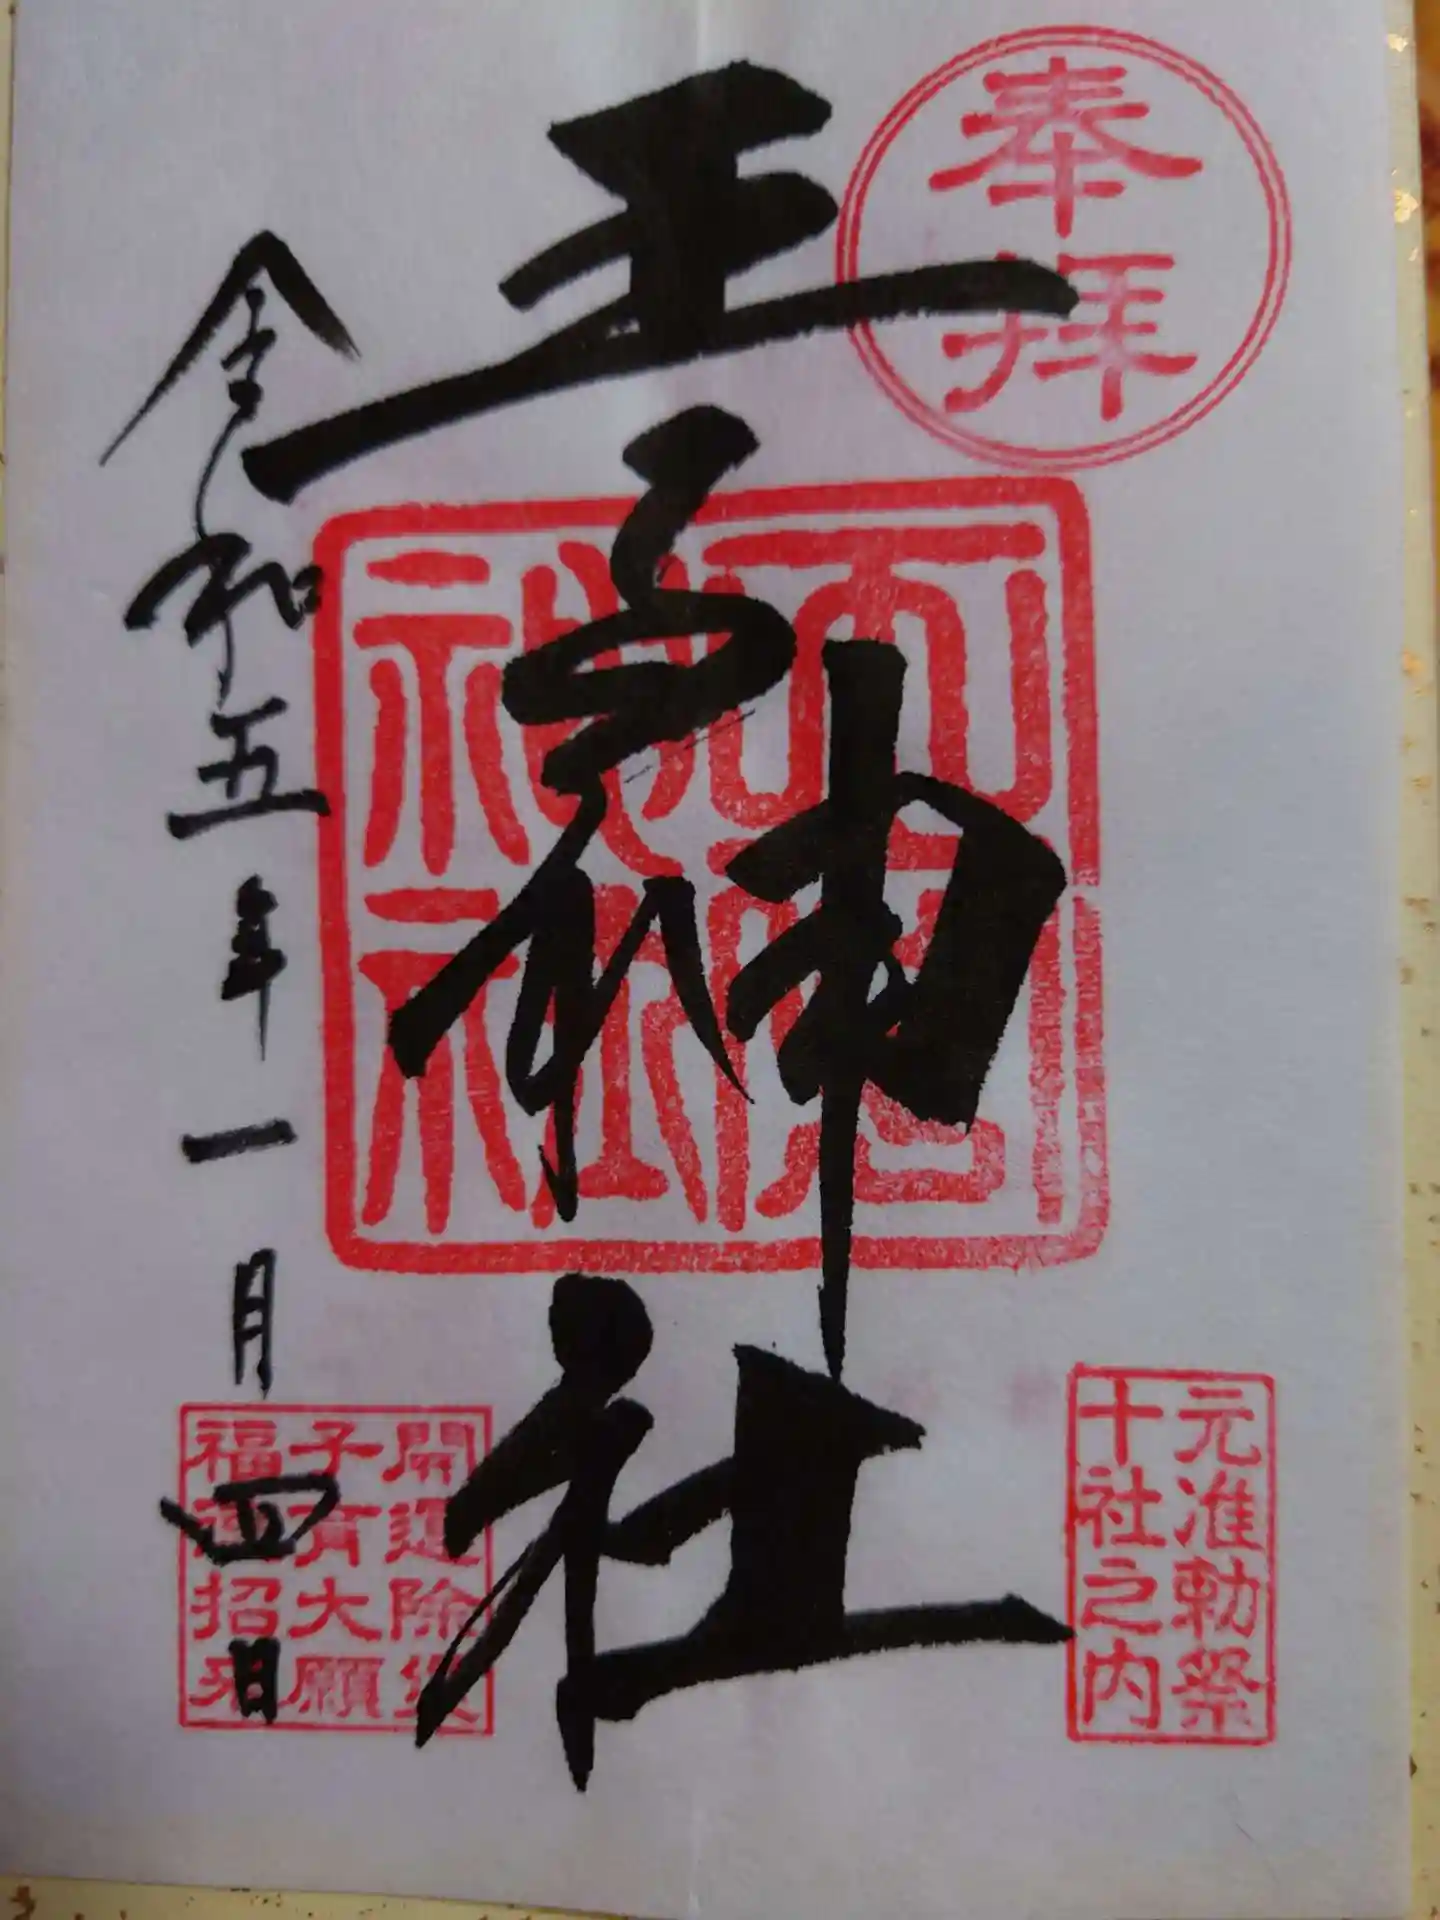 奉拝
元准勅祭
十社之内
王子神社
開運除災
子育大願
福徳招来
令和五年一月四日